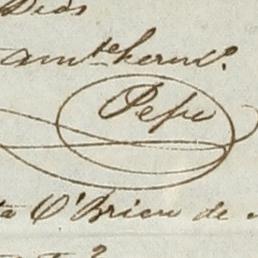 Dios
am.te herm.o
Pepe
ta O'Brien de